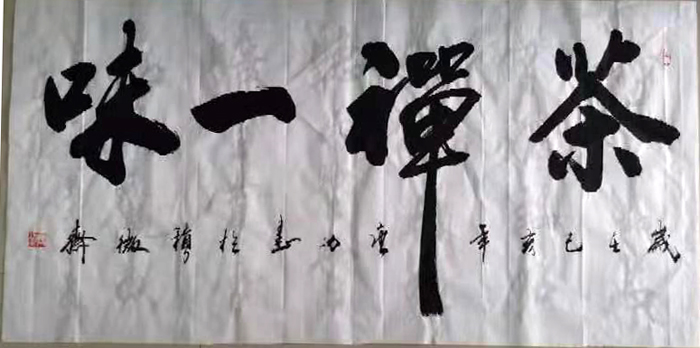 茶禪一味
歲在己亥年 書於 微齋